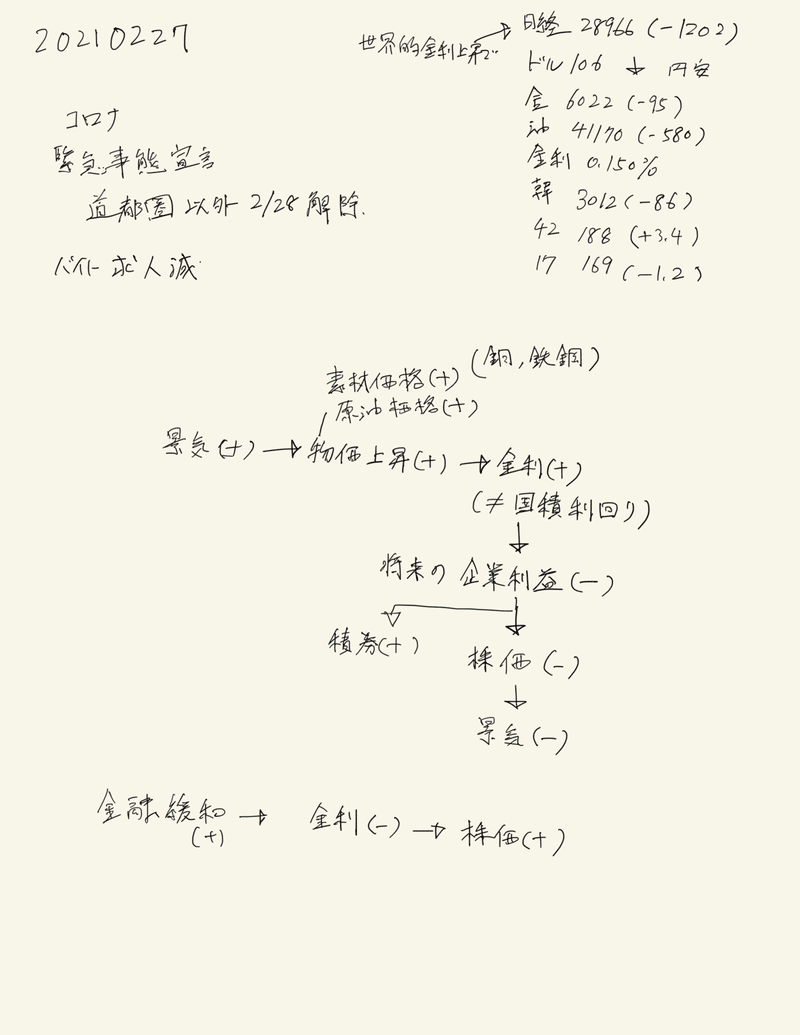 20210227
世界的金利上昇で→日経 28966 (-1202)
ドル 106 ↓ 円安
金 6022 (-95)
油 41170 (-580)
金利 0.150%
韓 3012 (-86)
42 188 (+3.4)
17 169 (-1.2)
コロナ
緊急事態宣言
首都圏以外 2/28 解除.
バイト求人減
素材価格(+) (銅,鉄鋼)
原油価格(+)
景気(+) → 物価上昇(+) → 金利(+)
(≠国積利回り)
↓
将来の企業利益(-)
↓ ↓
積券(+) 株価(-)
↓
景気(-)
金融緩和 → 金利(-) → 株価(+)
(+)